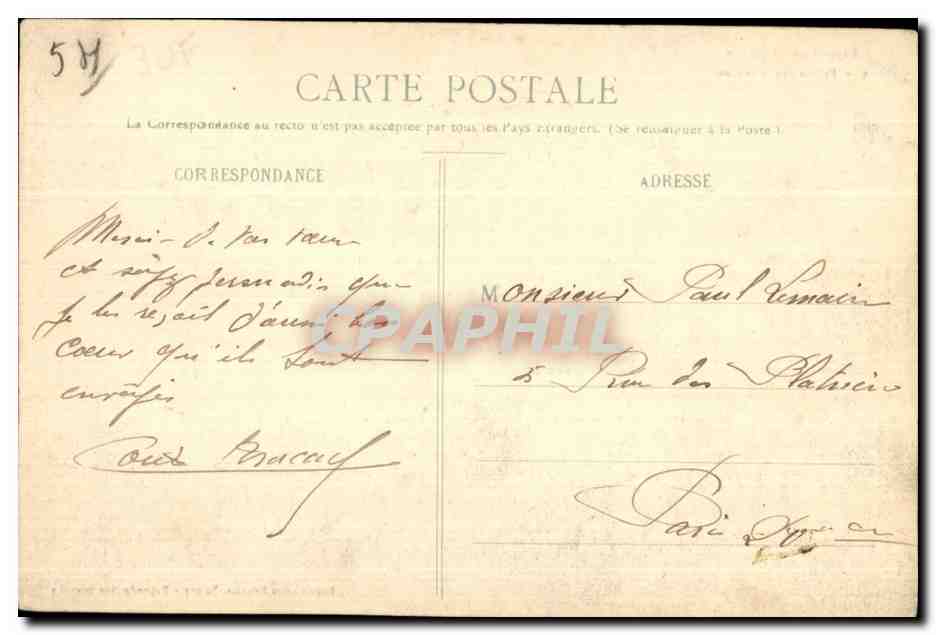 5M
CARTE POSTALE
La Correspondance au recto n'est pas acceptée par tous les Pays étrangers. (Se renseigner à la Poste).
CORRESPONDANCE
ADRESSE
Merci de vos vœux
et soyez persuadés que
je les reçoit d'aussi bon
cœur qu'ils sont
envoyés
Monsieur Paul Lemain
5 Rue des Platrière
Paris
CPAPHIL